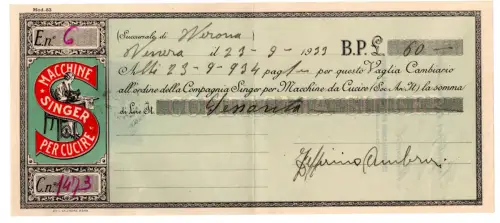 Mod. 83
E. n.º 6
MACCHINE
SINGER
PER CUCIRE
C. n.º 1473
(Succursale) di Verona
il 23 - 9 - 1933 B.P.£. 60 —
Alli 23 - 9 - 934 per questo Vaglia Cambiario
all'ordine della Compagnia Singer per Macchine da Cucire (Soc. An. It.) la somma
di Lire It. Sessanta